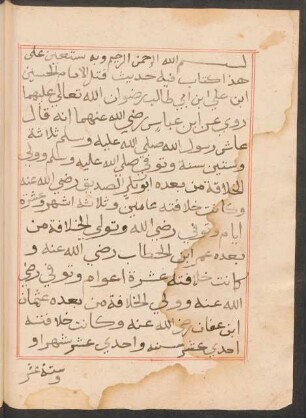 بسم الله الرحمن الرحيم وبه نستعين على
هذا كتاب فيه حديث قتل الامام الحسين
ابن علي ابن ابي طالب رضوان الله تعالى عليهما
روي عن ابن عباس رضي الله عنهما انه قال
عاش رسول الله صلى الله عليه وسلم ثلاثة
وستين سنة وتوفي صلى الله عليه وسلم وولي
الخلافة من بعده ابو بكر الصديق رضي الله عنه
وكانت خلافته عامين وثلاثة اشهر وعشرة
ايام وتوفي رضي الله وتولى الخلافة من
بعده عمر ابن الخطاب رضي الله عنه و
كانت خلافته عشرة اعوام وتوفي رضي
الله عنه وولي الخلافة من بعده عثمان
ابن عفان رضي الله عنه وكانت خلافته
احدي عشر سنه واحدي عشر شهرا و
وستة عشر